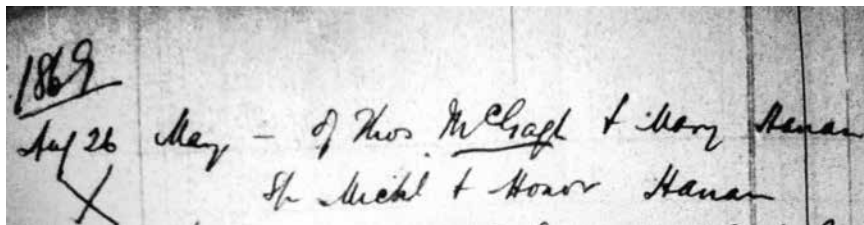 1869
Aug 26 Mary - of Thos McGragh & Mary Hanan
Sp Michl & Honor Hanan